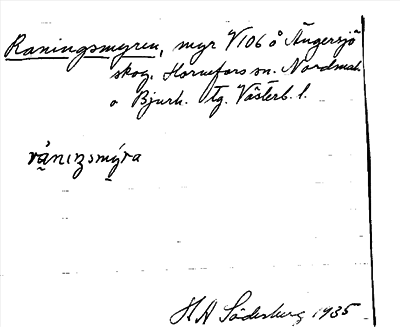 Raningsmyren, myr V106 å Ängersjö
skog, Hörnefors sn. Nordmal.
o Bjurh. tg. Västerb. l.
rånɪŋsmýra
H A Söderberg 1935